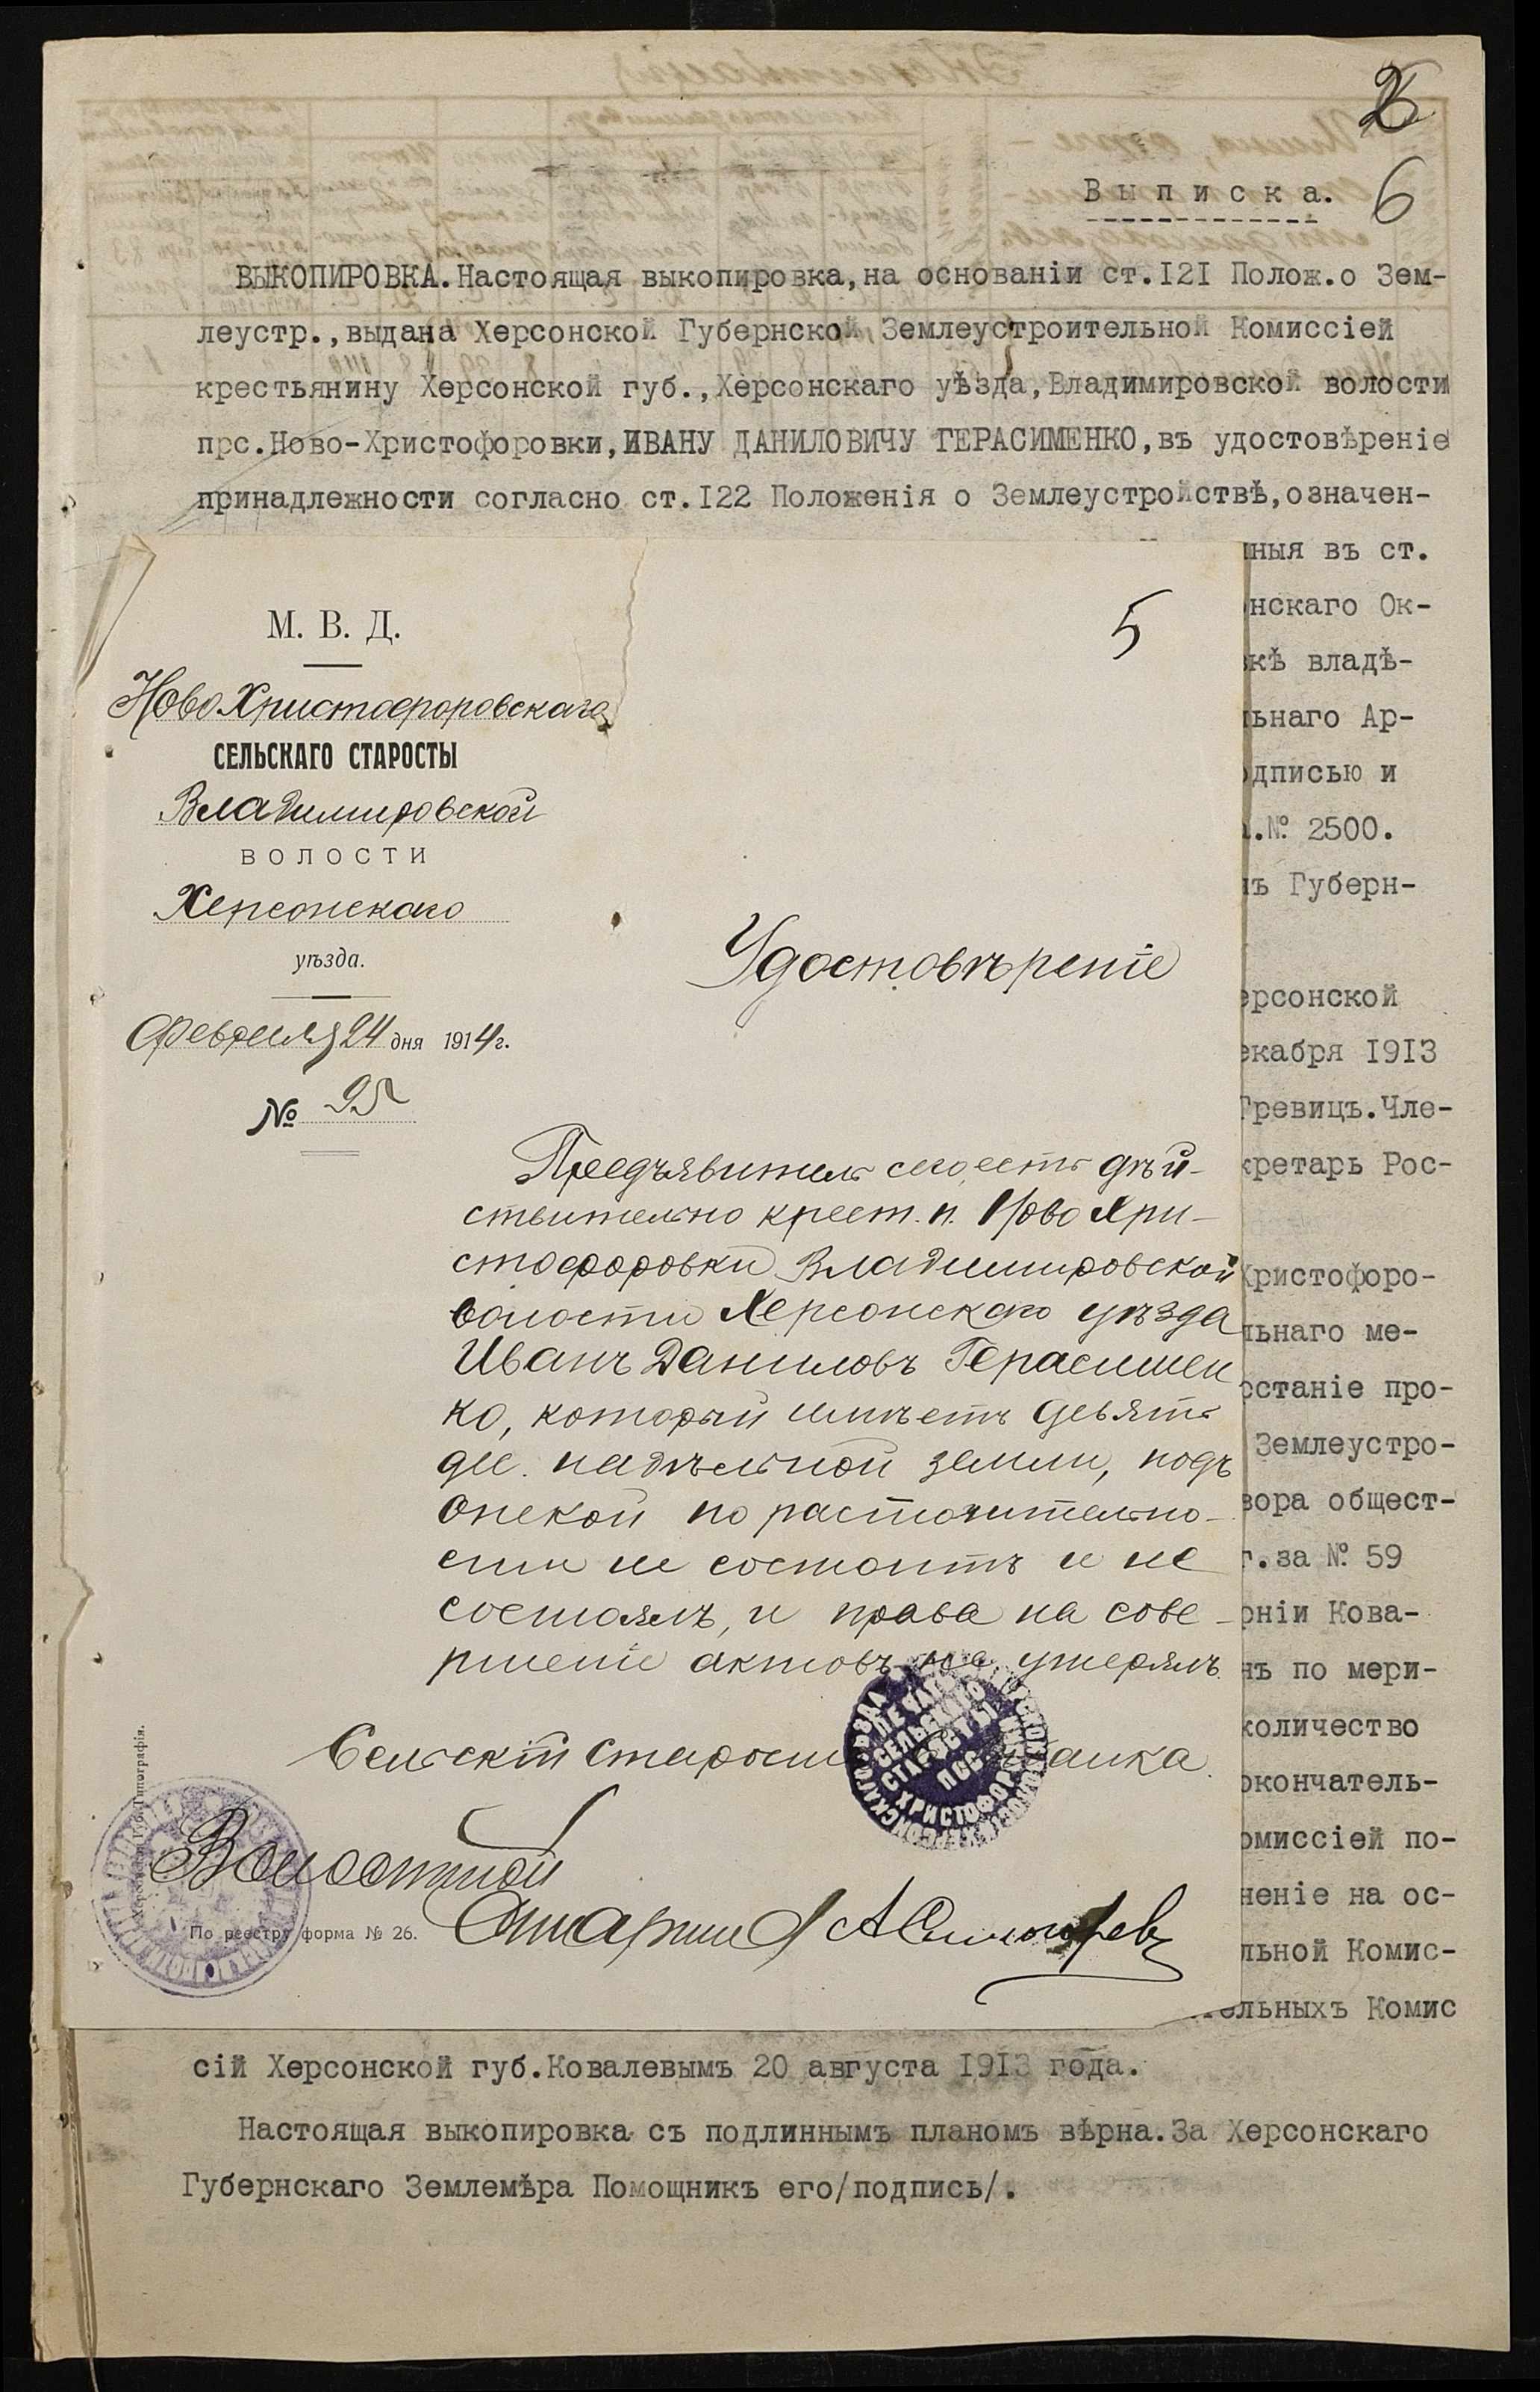 6
Выписка.
ВЫКОПИРОВКА.Настоящая выкопировка,на основаніи ст.I2I Полож.о Зем-
леустр.,выдана Херсонской Губернской Землеустроительной Комиссіей
крестьянину Херсонской губ.,Херсонскаго уѣзда,Владимировской волости
прс.Ново-Христофоровки,ИВАНУ ДАНИЛОВИЧУ ГЕРАСИМЕНКО,въ удостовѣреніе
принадлежности согласно ст.I22 Положенія о Землеустройствѣ,означен-
ныя въ ст.
нскаго Ок-
кѣ владѣ-
льнаго Ар-
одписью и
.№ 2500.
ъ Губерн-
ерсонской
екабря I9I3
Гревицъ.Чле-
кретарь Рос-
Христофоро-
льнаго ме-
останіе про-
Землеустро-
вора общест-
г.за № 59
рніи Кова-
нъ по мери-
количество
окончатель-
омиссіей по-
неніе на ос-
льной Комис-
тельныхъ Комис
сій Херсонской губ.Ковалевымъ 20 августа I9I3 года.
Настоящая выкопировка съ подлиннымъ планомъ вѣрна.За Херсонскаго
Губернскаго Землемѣра Помощникъ его/подпись/.
5
М. В. Д.
Ново Христофоровскаго
СЕЛЬСКАГО СТАРОСТЫ
Владимировской
ВОЛОСТИ
Херсонскаго
уѣзда.
Февраля 24 дня 1914г.
№ 95
Удостовѣреніе
Предъявитель сего есть дѣй-
ствительно крест. п. Ново Хри-
стофоровки Владимировской
волости Херсонскаго уѣзда
Иванъ Даниловъ Герасимен
ко, который имѣетъ девять
дес. надѣльной земли, подъ
опекой по расточительно-
сти не состоитъ и не
состоялъ, и права на сове-
ршеніе актовъ не утерялъ.
Сельскій Староста
ПЕЧАТЬ
СЕЛЬСКАГО
СТАРОСТЫ
ПОС.
ХРИСТОФОР
Волостной
Старшина
По реестру форма № 26.